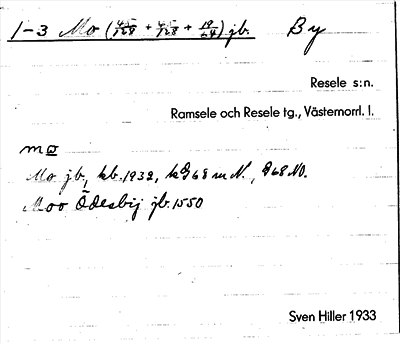 1-3 Mo (45/128 + 45/128 + 19/64) jb. By
Resele s:n.
Ramsele och Resele tg., Västernorrl. l.
mω
Mo jb, kb. 1932, kG 68 m N., G 68 NO.
Moo Ödesbÿ jb. 1550
Sven Hiller 1933